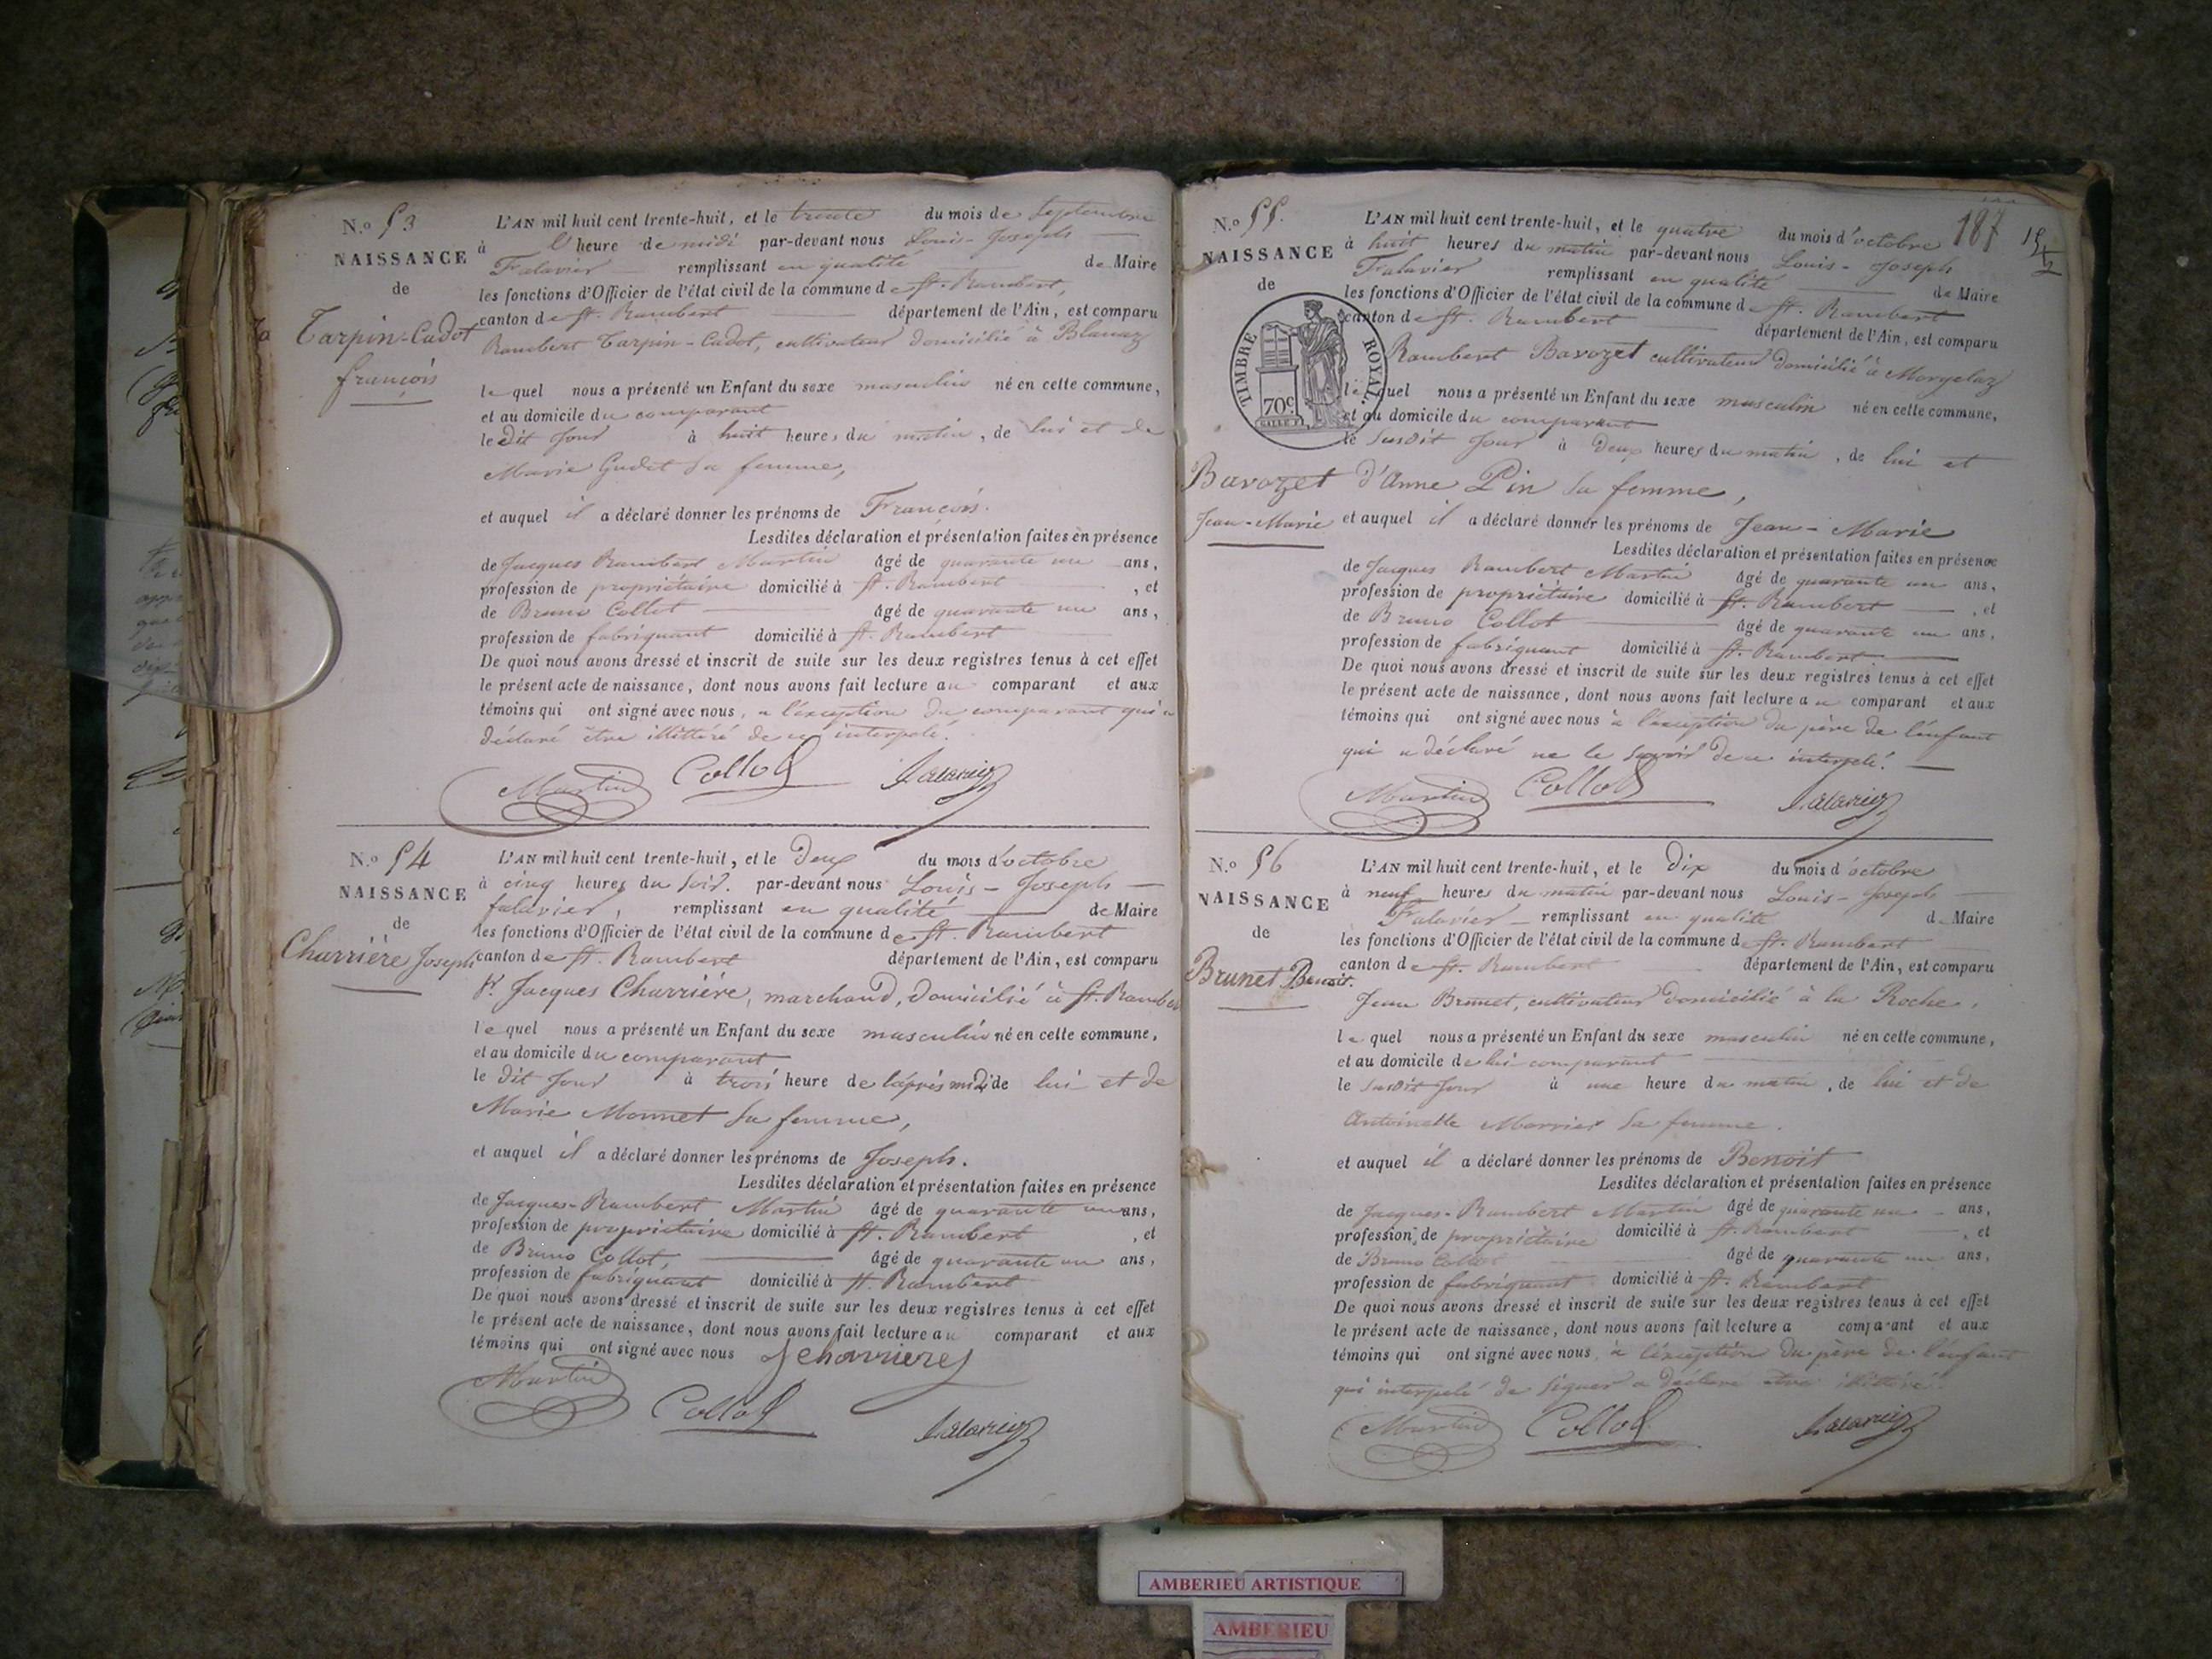 N.o 53
NAISSANCE
de
Tarpin-Cadot
françois
L'AN mil huit cent trente-huit, et le trente du mois de Septembre
à l'heure de midi par-devant nous Louis-Joseph
Falavier remplissant en qualité de Maire
les fonctions d'Officier de l'état civil de la commune de St. Rambert,
canton de St. Rambert département de l'Ain, est comparu
Rambert Tarpin-Cadot, cultivateur domicilié à Blanaz
lequel nous a présenté un Enfant du sexe masculin né en cette commune,
et au domicile du comparant
le dit jour à huit heures du matin, de lui et de
Marie Gudet sa femme,
et auquel il a déclaré donner les prénoms de François.
Lesdites déclaration et présentation faites en présence
de Jacques Rambert Martin âgé de quarante un ans,
profession de propriétaire domicilié à St. Rambert, et
de Bruno Collot âgé de quarante un ans,
profession de fabriquant domicilié à St. Rambert
De quoi nous avons dressé et inscrit de suite sur les deux registres tenus à cet effet
le présent acte de naissance, dont nous avons fait lecture au comparant et aux
témoins qui ont signé avec nous, à l'exception du comparant qui a
déclaré être illittéré de ce interpelé.
Martin Collot Falavier
N.o 54
NAISSANCE
de
Charrière Joseph
L'AN mil huit cent trente-huit, et le Deux du mois d'octobre
à cinq heures du soir. par-devant nous Louis-Joseph
falavier, remplissant en qualité de Maire
les fonctions d'Officier de l'état civil de la commune de St. Rambert
canton de St. Rambert département de l'Ain, est comparu
Sr. Jacques Charrière, marchand, domicilié à St. Rambert
lequel nous a présenté un Enfant du sexe masculin né en cette commune,
et au domicile du comparant
le dit jour à trois heure de l'après midi de lui et de
Marie Monnet sa femme,
et auquel il a déclaré donner les prénoms de Joseph.
Lesdites déclaration et présentation faites en présence
de Jacques-Rambert Martin âgé de quarante un ans,
profession de propriétaire domicilié à St. Rambert, et
de Bruno Collot, âgé de quarante un ans,
profession de fabriquant domicilié à St. Rambert
De quoi nous avons dressé et inscrit de suite sur les deux registres tenus à cet effet
le présent acte de naissance, dont nous avons fait lecture au comparant et aux
témoins qui ont signé avec nous J charrieres
Martin Collot Falavier
187
N.o 55.
NAISSANCE
de
TIMBRE ROYAL.
70c
Bavozet
Jean-Marie
L'AN mil huit cent trente-huit, et le quatre du mois d'octobre
à huit heures du matin par-devant nous Louis-Joseph
Falavier remplissant en qualité de Maire
les fonctions d'Officier de l'état civil de la commune de St. Rambert
canton de St. Rambert département de l'Ain, est comparu
Rambert Bavozet cultivateur domicilié à Morgelaz
lequel nous a présenté un Enfant du sexe masculin né en cette commune,
et au domicile du comparant
le susdit jour à Deux heures du matin, de lui et
d'Anne Pin sa femme,
et auquel il a déclaré donner les prénoms de Jean-Marie
Lesdites déclaration et présentation faites en présence
de Jacques Rambert Martin âgé de quarante un ans,
profession de propriétaire domicilié à St. Rambert, et
de Bruno Collot âgé de quarante un ans,
profession de fabriquant domicilié à St. Rambert
De quoi nous avons dressé et inscrit de suite sur les deux registres tenus à cet effet
le présent acte de naissance, dont nous avons fait lecture au comparant et aux
témoins qui ont signé avec nous à l'exception du père de l'enfant
qui a déclaré ne le savoir de ce interpelé.
Martin Collot Falavier
N.o 56
NAISSANCE
de
Brunet Benoit.
L'AN mil huit cent trente-huit, et le Dix du mois d'octobre
à neuf heures du matin par-devant nous Louis-Joseph
Falavier remplissant en qualité de Maire
les fonctions d'Officier de l'état civil de la commune de St. Rambert
canton de St. Rambert département de l'Ain, est comparu
Jean Brunet, cultivateur domicilié à la Roche,
lequel nous a présenté un Enfant du sexe masculin né en cette commune,
et au domicile de lui comparant
le susdit jour à une heure du matin, de lui et de
Antoinette Morrier sa femme.
et auquel il a déclaré donner les prénoms de Benoit
Lesdites déclaration et présentation faites en présence
de Jacques-Rambert Martin âgé de quarante un ans,
profession de propriétaire domicilié à St. Rambert, et
de Bruno Collot âgé de quarante un ans,
profession de fabriquant domicilié à St. Rambert
De quoi nous avons dressé et inscrit de suite sur les deux registres tenus à cet effet
le présent acte de naissance, dont nous avons fait lecture a comparant et aux
témoins qui ont signé avec nous à l'exception du père de l'enfant
qui interpelé de signer a déclaré être illittéré.
Martin Collot Falavier
AMBERIEU ARTISTIQUE
AMBERIEU